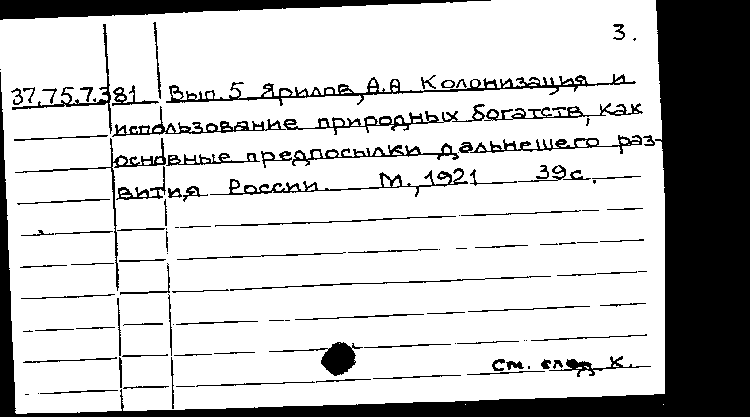 3.
37.75.7.381 Вып.5 Ярилов, А.А Колонизация и
использование природных богатств, как
основные предпосылки дальнешего раз-
вития России. М., 1921 39с.
См. след. К.